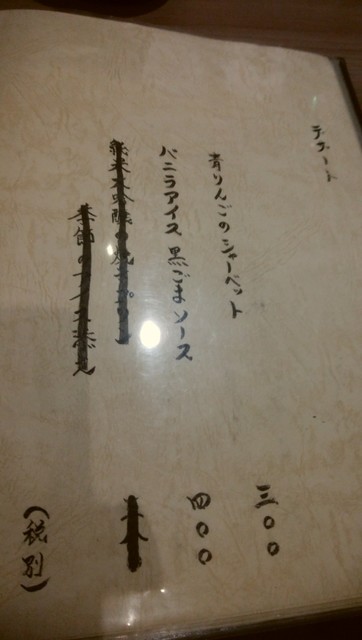 デザート
青りんごのシャーベット 三〇〇
バニラアイス 黒ごまソース 四〇〇
季節の
（税別）